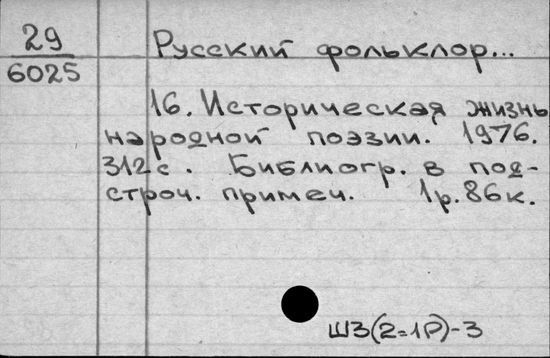 29
6025
Русский фольклор...
16. Историческая жизнь
народной поэзии. 1976.
312 с. Библиогр. в под-
строч. примеч. 1р. 86к.
Ш3(2=1Р)-3